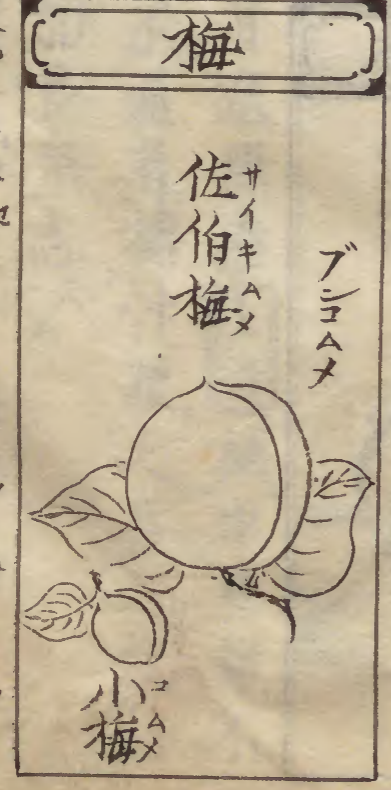 梅
ブンコムメ
佐伯梅
サイキムメ
小梅
コムメ